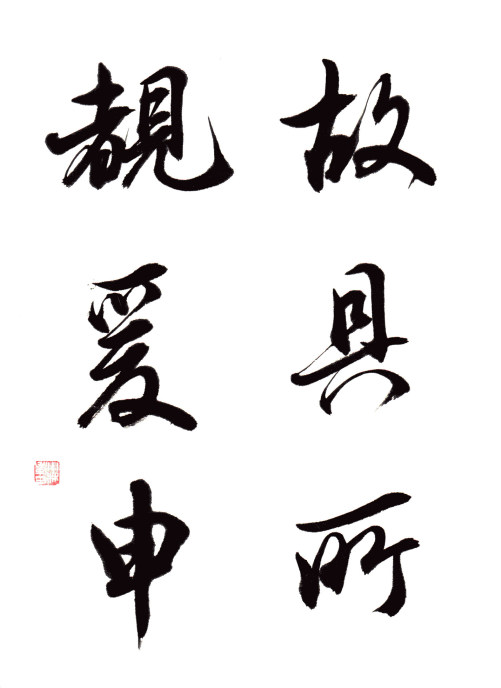 故具所
覩爰申